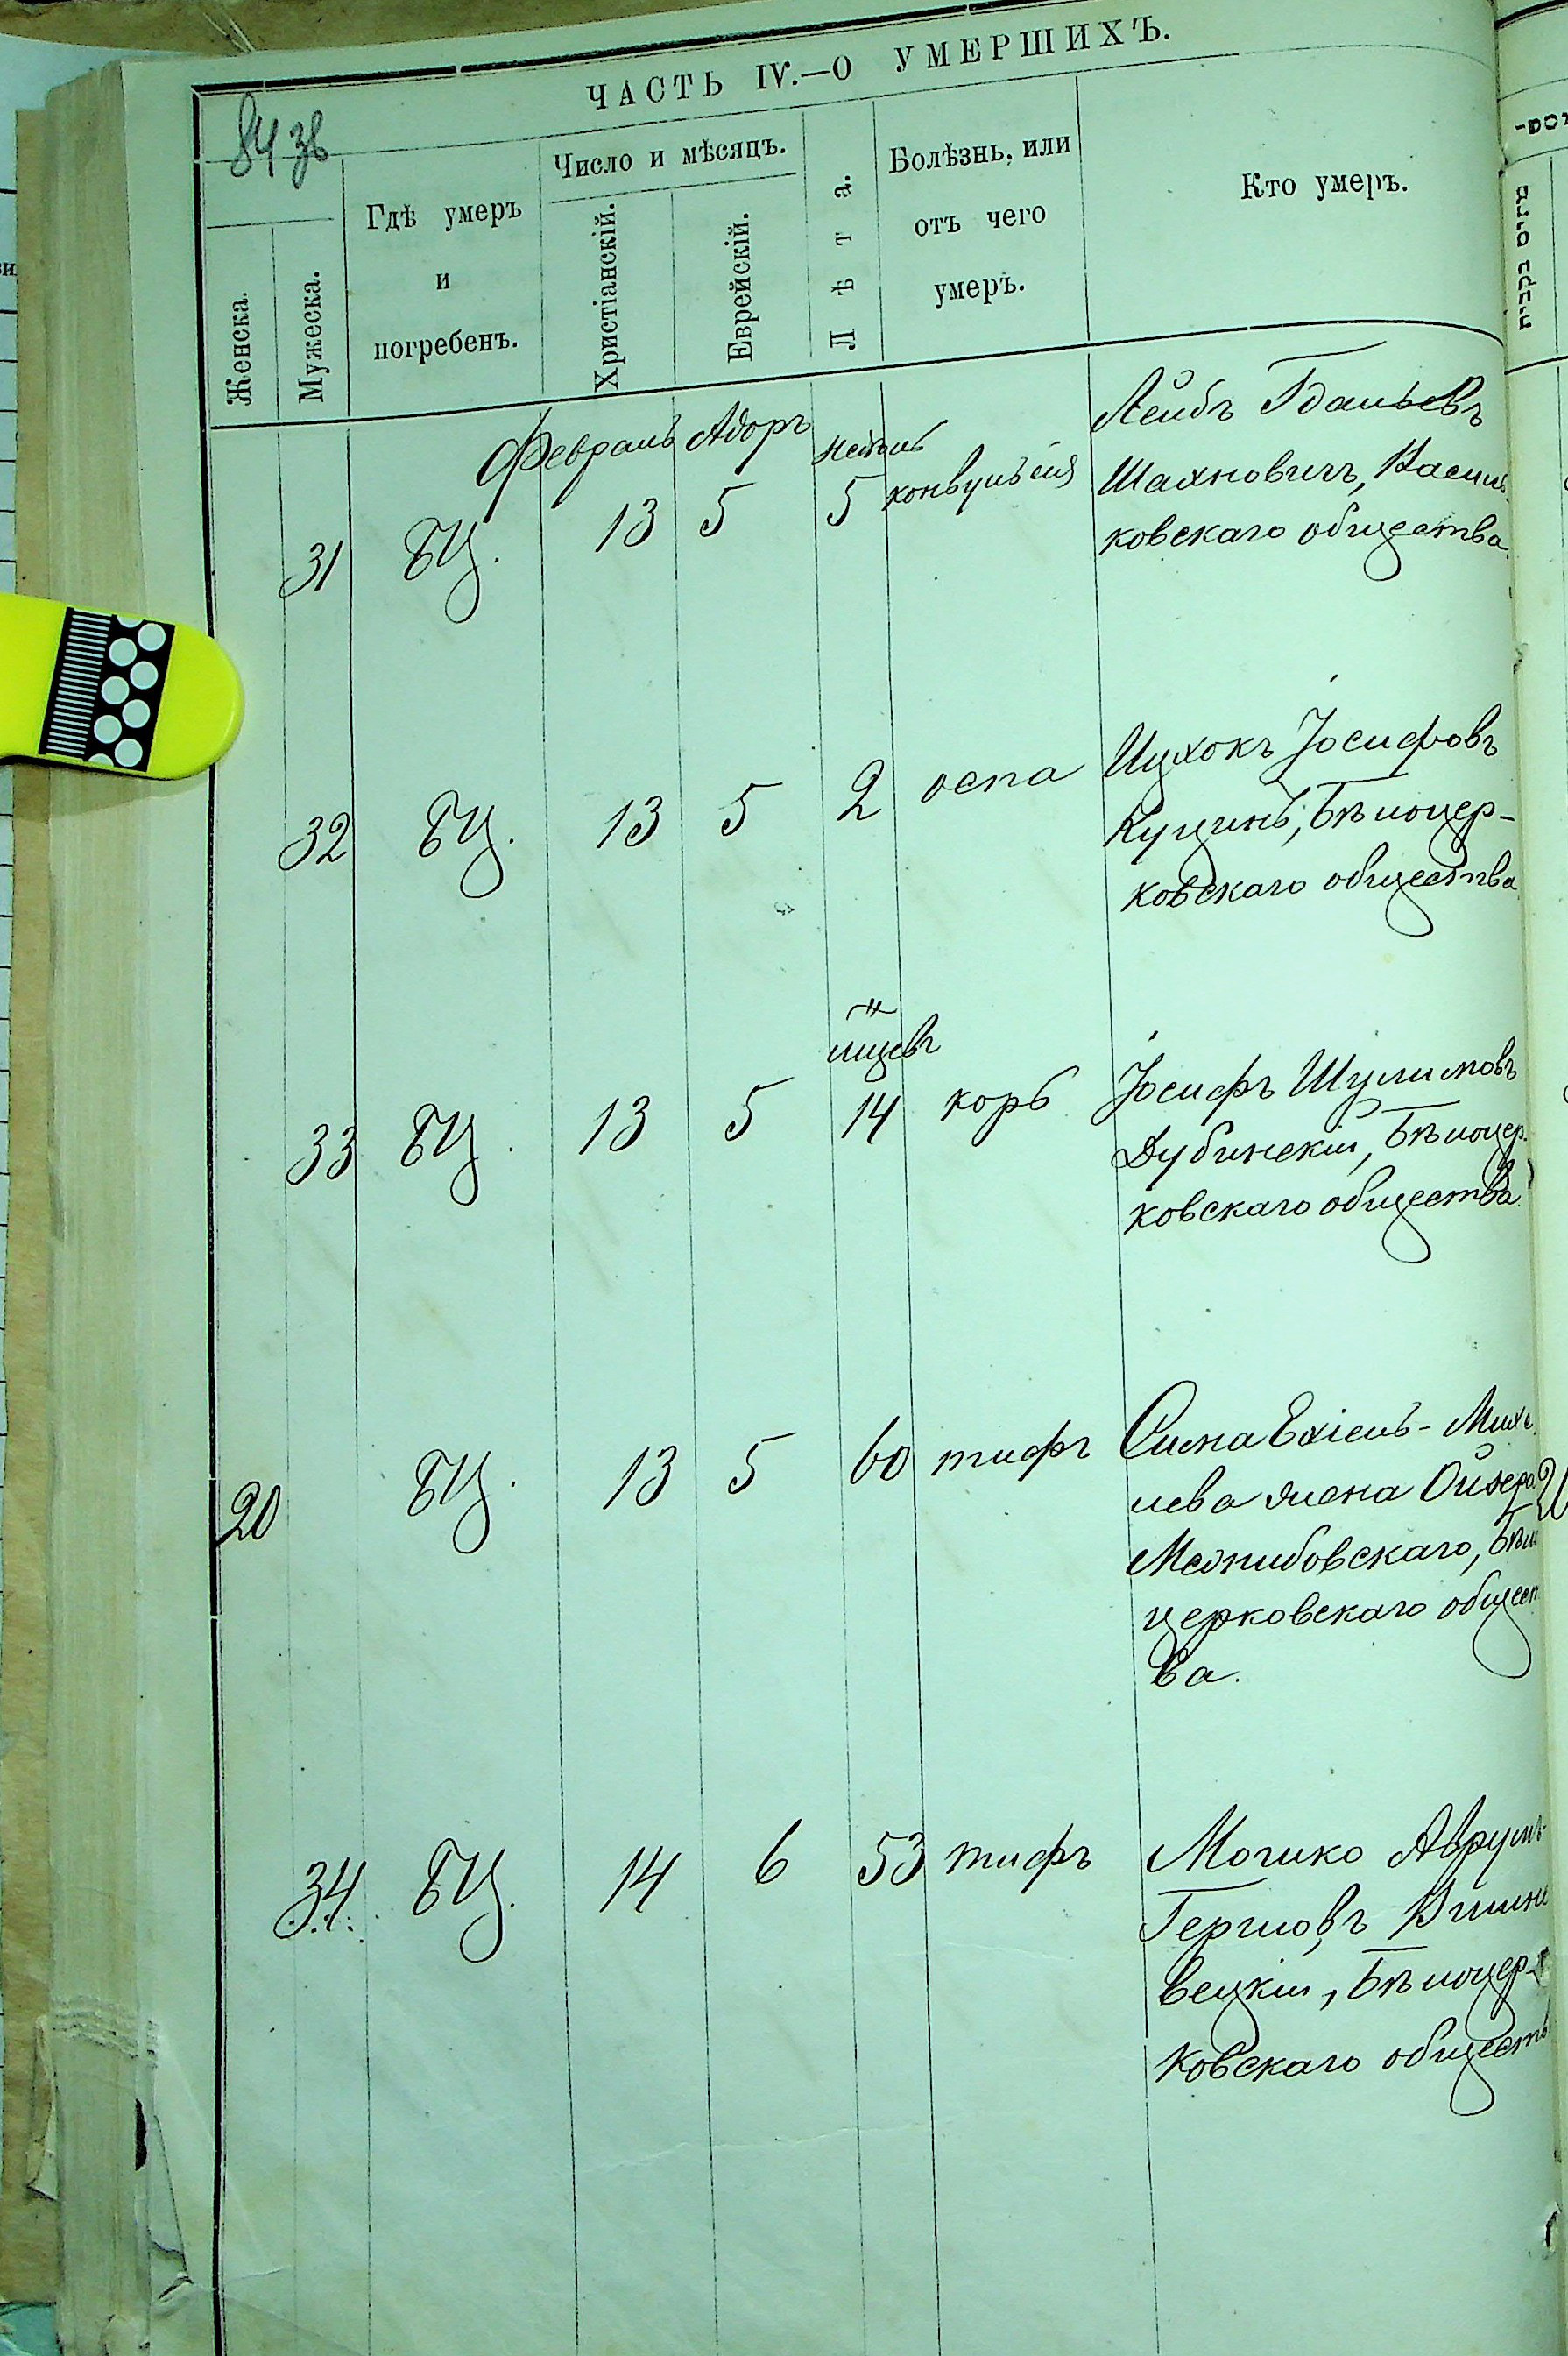 ЧАСТЬ IV.—О УМЕРШИХЪ.
84 зв
Женска.
Мужеска.
Гдѣ умеръ
и
погребенъ.
Число и мѣсяцъ.
Христіанскій.
Еврейскій.
Лѣта.
Болѣзнь, или
отъ чего
умеръ.
Кто умеръ.
Февраль Адоръ
31 БЦ. 13 5 недѣль 5 конвульсія
Лейбъ
Шахновичъ, Василь
ковскаго общества.
32 БЦ. 13 5 2 оспа
Ицхокъ Іосифовъ
Куцинъ, Бѣлоцер-
ковскаго общества
33 БЦ. 13 5 мцевъ 14 корь
Іосифъ Шулимовъ
Дубинскій, Бѣлоцер.
ковскаго общества.
20 БЦ. 13 5 60 тифъ
Сима Ехіель-Михе
лева жена
Межибовскаго, Бѣл
церковскаго общест
ва.
34 БЦ. 14 6 53 тифъ
Мошко Аврумъ-
Гершовъ Вишне
вецкій, Бѣлоцер-
ковскаго обществ